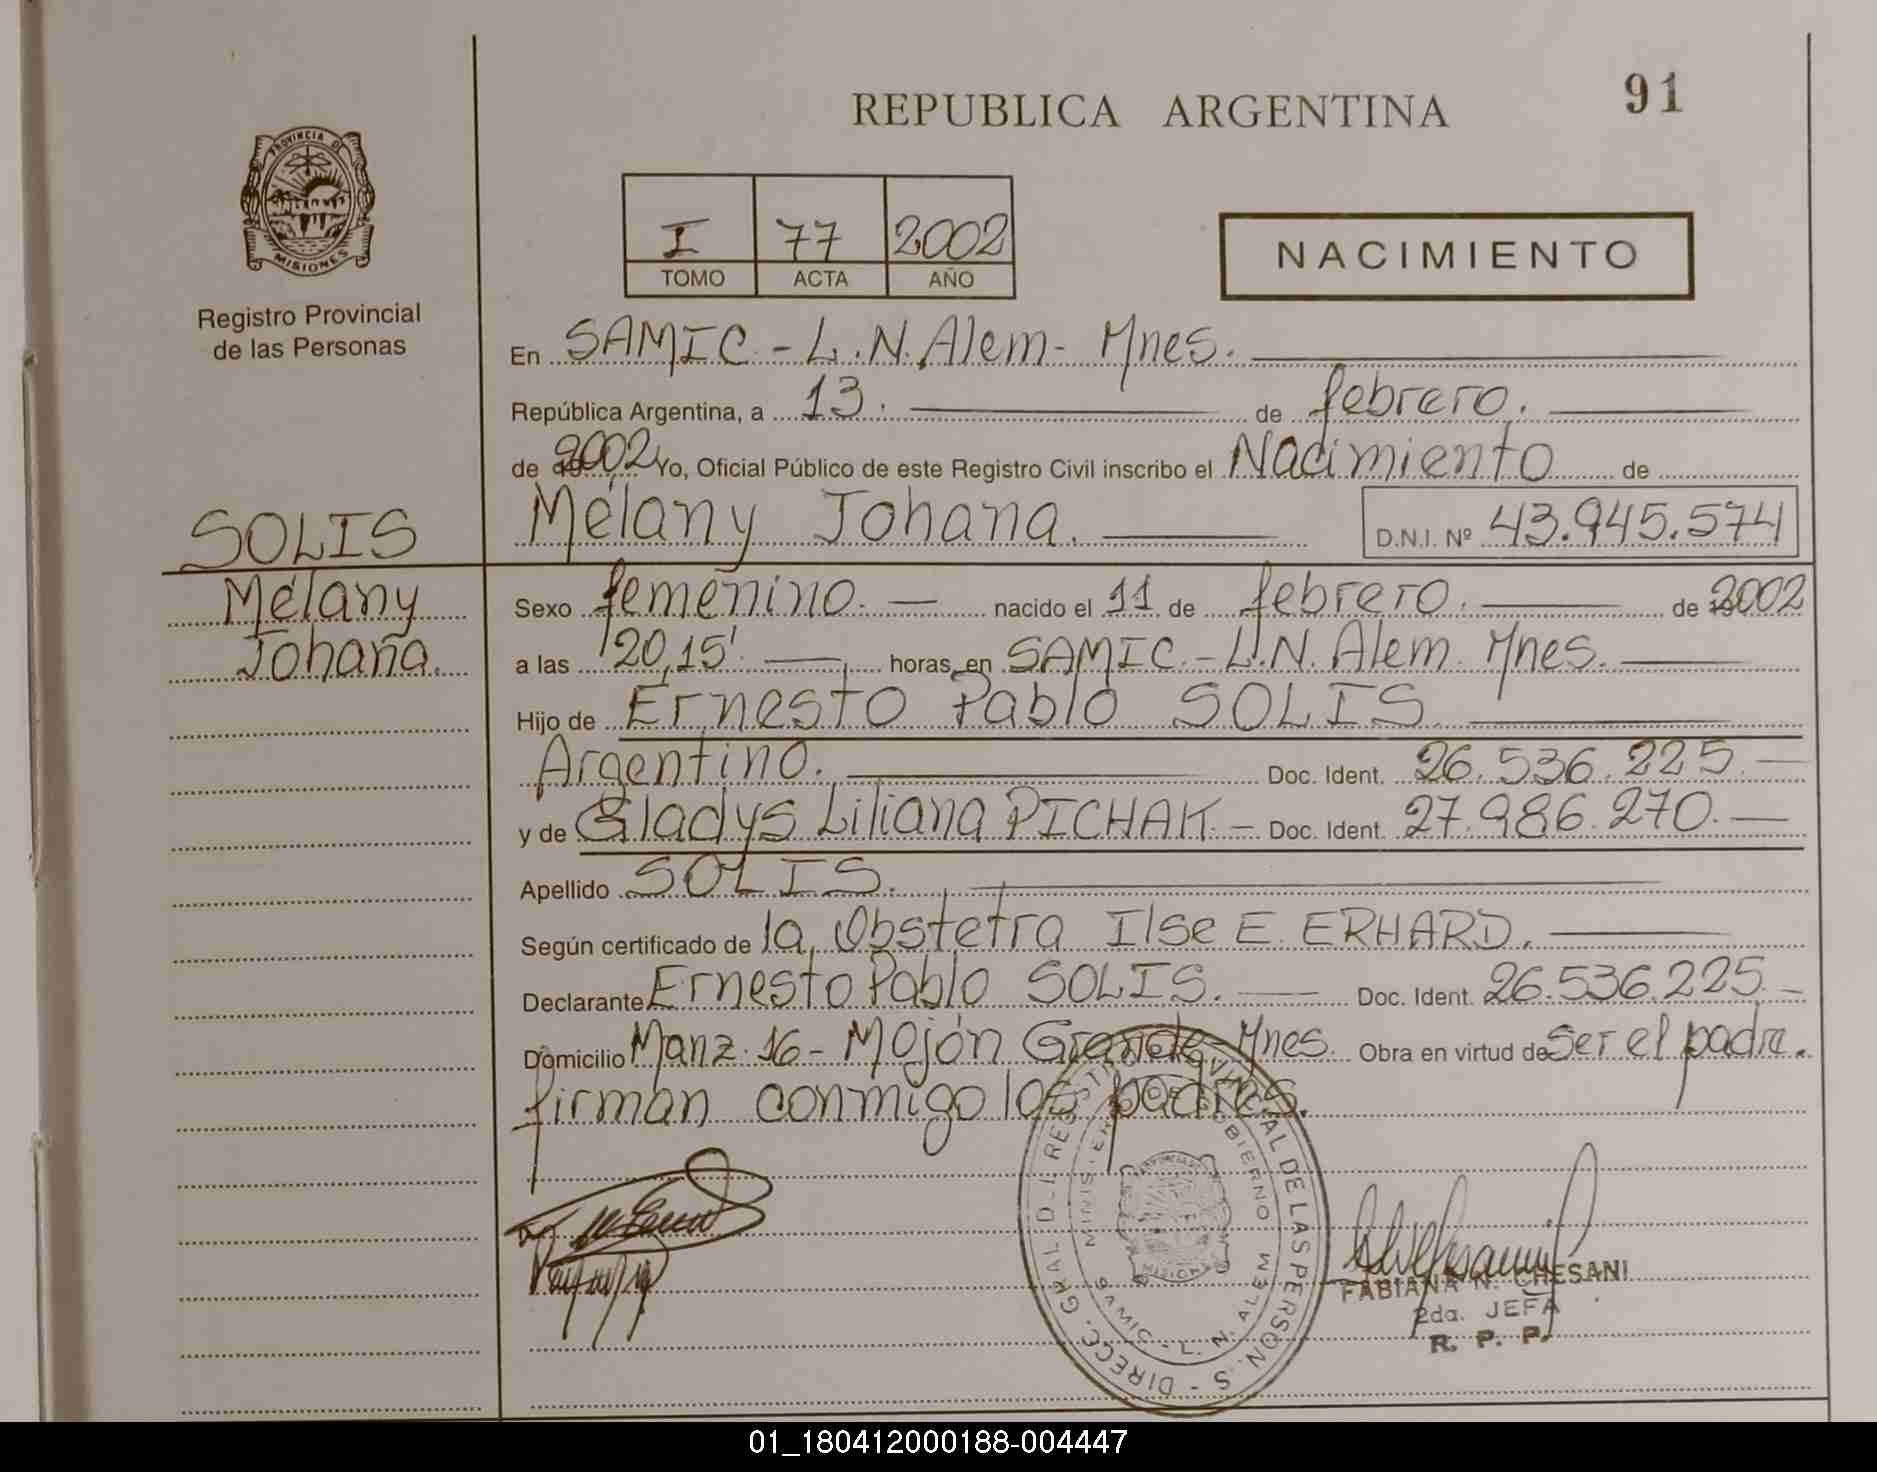 REPUBLICA ARGENTINA
91
PROVINCIA DE
MISIONES
Registro Provincial
de las Personas
I 77 2002
TOMO ACTA AÑO
NACIMIENTO
En SAMIC - L.N.Alem - Mnes.
República Argentina, a 13. de febrero.
de 2002 Yo, Oficial Público de este Registro Civil inscribo el Nacimiento de
Mélany Johana. D.N.I. Nº 43.945.574
SOLIS
Mélany
Johana.
Sexo femenino. nacido el 11 de febrero. de 2002
a las 20,15' horas, en SAMIC. - L.N. Alem. Mnes.
Hijo de Ernesto Pablo SOLIS
Argentino. Doc. Ident. 26.536.225
y de Gladys Liliana PICHAK. - Doc. Ident. 27.986.270.
Apellido SOLIS.
Según certificado de la Obstetra Ilse E. ERHARD.
Declarante Ernesto Pablo SOLIS. Doc. Ident. 26.536.225
Domicilio Manz. 16 - Mojón Grande - Mnes. Obra en virtud de ser el padre.
firman conmigo los padres.
FABIANA N. CHESANI
2da. JEFA
R. P. P.
SAMIC - L. N. ALEM
01_180412000188-004447